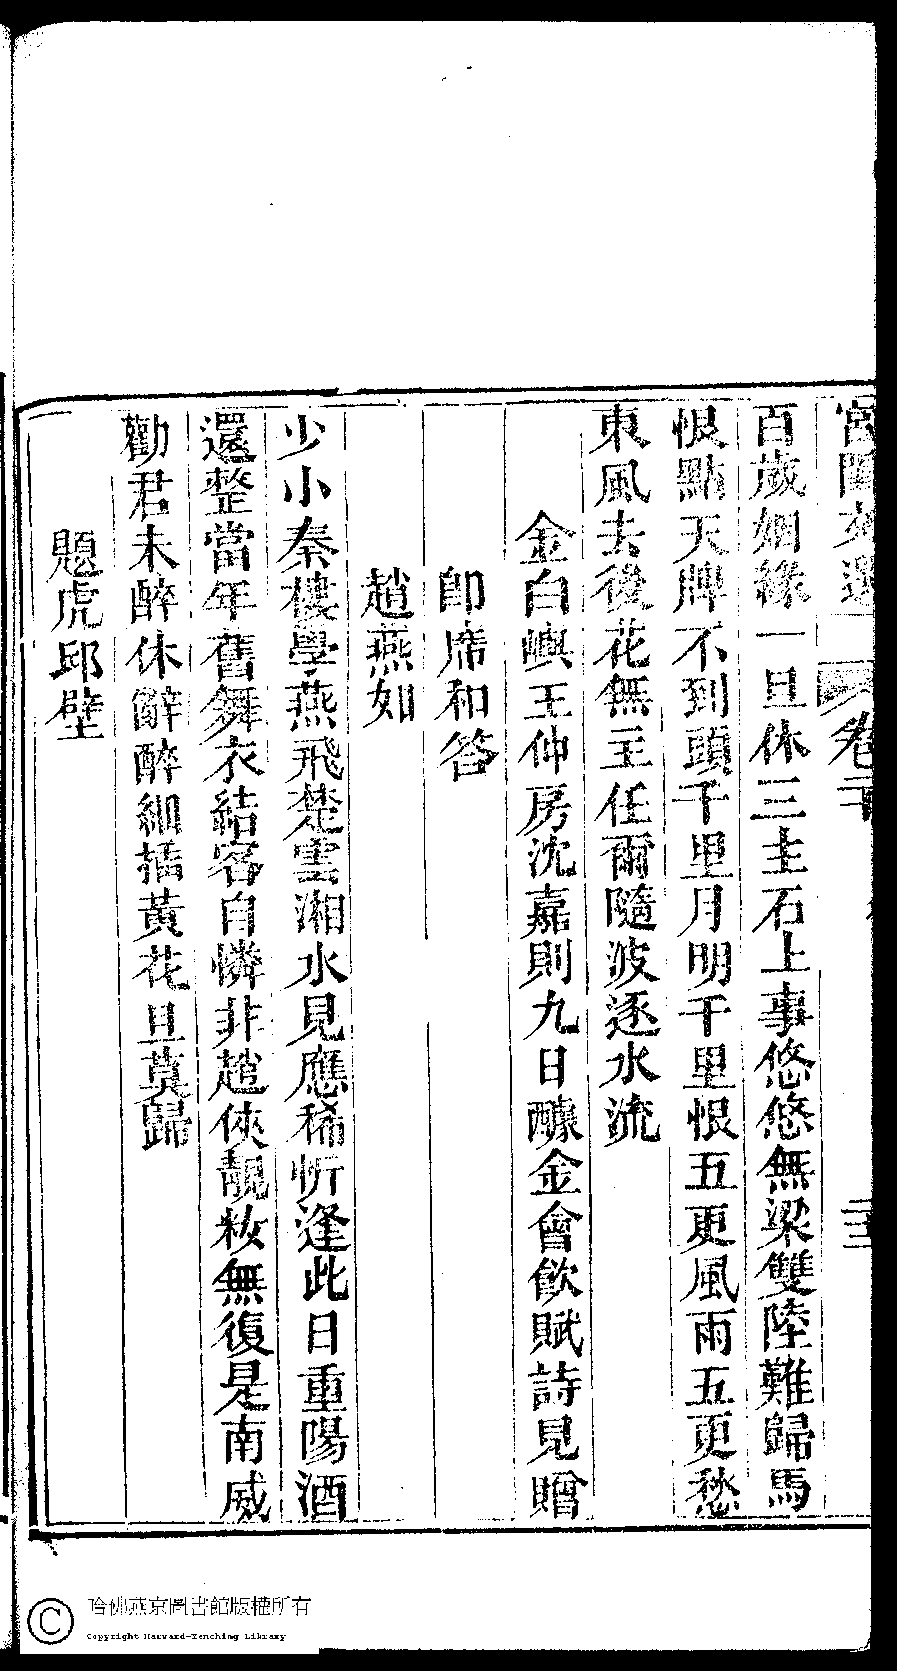 宮閨文選 卷二十 二十三
百歲姻緣一旦休三生石上事悠悠無梁雙陸難歸馬
恨點天牌不到頭千里月明千里恨五更風雨五更愁
東風去後花無主任爾隨波逐水流
金白嶼王仲房沈嘉則九日醵金會飲賦詩見贈
卽席和答
趙燕如
少小秦樓學燕飛楚雲湘水見應稀忻逢此日重陽酒
還整當年舊舞衣結客自憐非趙俠靚妝無復是南威
勸君未醉休辭醉細插黃花且莫歸
題虎邱壁
哈佛燕京圖書館版權所有
Copyright Harvard-Yenching Library